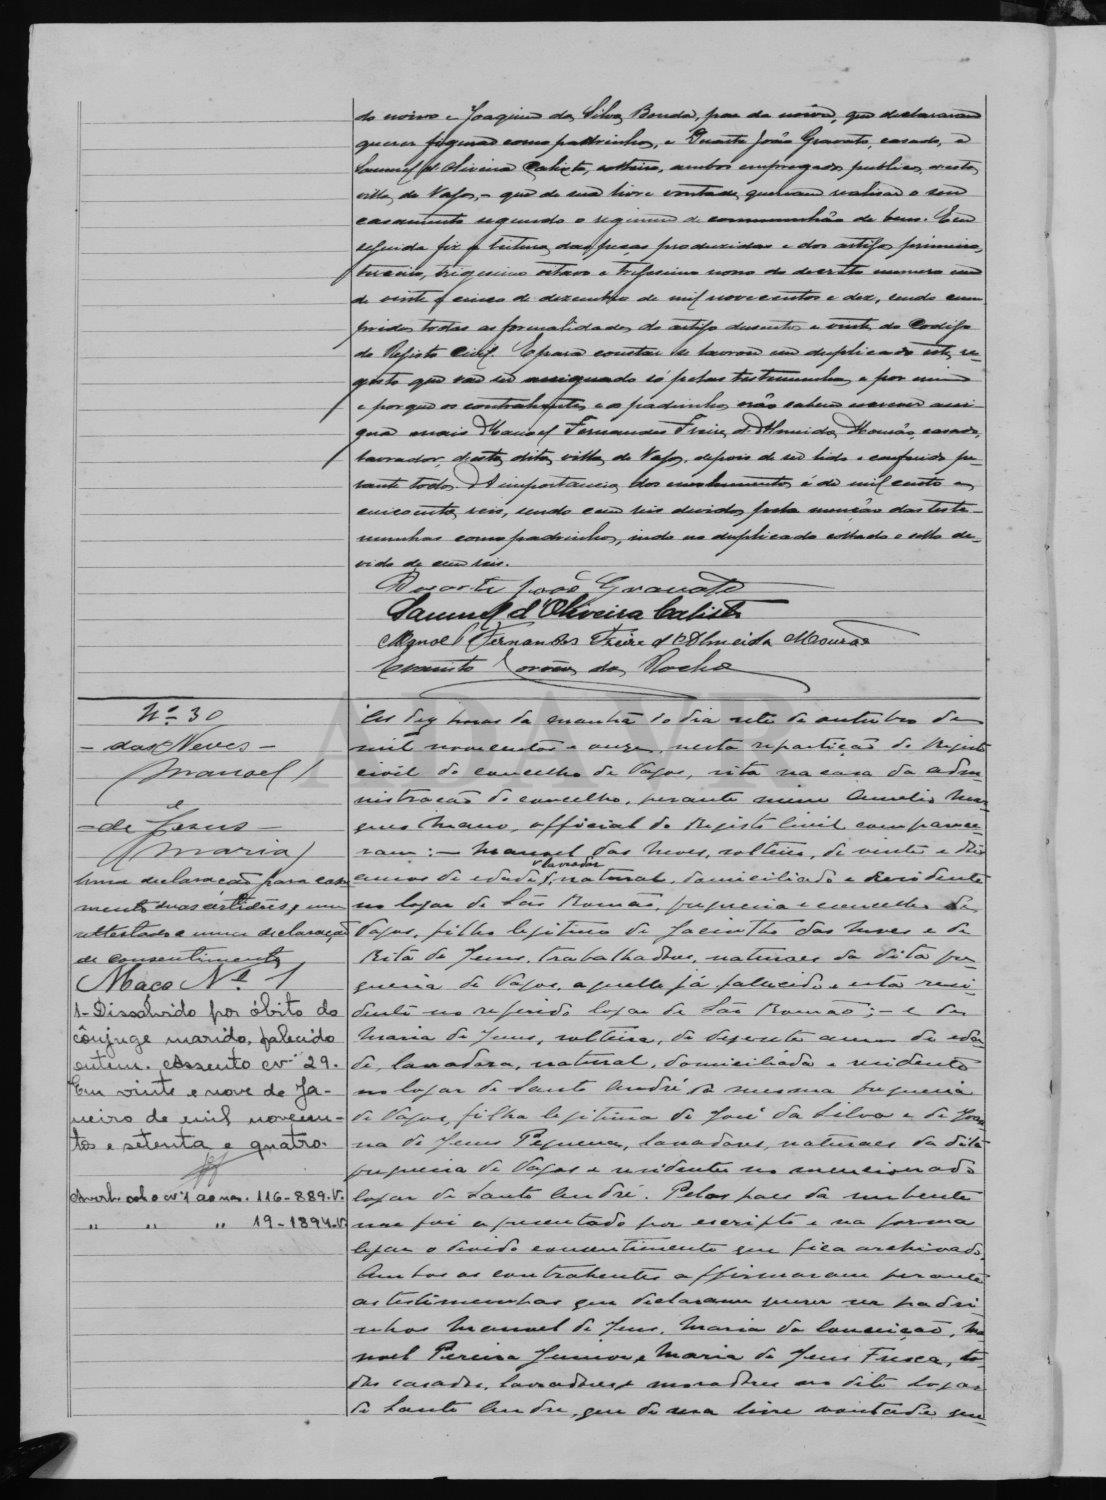 do noivo e Joaquim da Silva Bonda, pae da noiva, que declararam
querer figurar como padrinhos, e Duarte João Gravato, casado, e
Samuel d'Oliveira Calisto, solteiro, ambos empregados publicos, desta
villa de Vagos, - que de sua livre vontade queriam realisar o seu
casamento segundo o regimen de communhão de bens. Em
seguida fiz a leitura das peças produzidas e dos artigos primeiro,
terceiro, trigesimo oitavo e trigesimo nono do decreto numero um
de vinte e cinco de dezembro de mil novecentos e dez, sendo cum
pridas todas as formalidades do artigo duzentos e vinte do Codigo
do Registo Civil. E para constar se lavrou em duplicado este re-
gisto que vae ser assignado só pelas testemunhas e por mim
e porque os contrahentes e os padrinhos não sabem escrever assi-
gna mais Manoel Fernandes Freire d'Almeida Mourão, casado,
lavrador, desta dita villa de Vagos, depois de ser lido e conferido pe-
rante todos. A importancia dos emolumentos é de mil cento e
cincoenta reis, sendo cem reis devidos pela menção das teste-
munhas como padrinhos, indo no duplicado collado o sello de-
vido de cem reis.
Duarte João Gravato
Samuel d'Oliveira Calisto
Manoel Fernandes Freire d'Almeida Mourão
da Rocha
ADAVR
Nº 30
- das Neves -
Manoel
e
- de Jesus -
(Maria)
Uma declaração para casa
mento duas certidões, um
attestado e uma declaração
de consentimento
Maço Nº 1
1- Dissolvido por óbito do
cônjuge marido, falecido
ontem. Assento nº 29.
Em vinte e nove de Ja-
neiro de mil novecen-
tos e setenta e quatro.
Averb. sob o nº 1 ao nas. 116-889.V.
" " " 19-1894-V.
Às dez horas da manhã do dia sete de outubro de
mil novecentos e onze, nesta repartição do Registo
civil do concelho de Vagos, sita na casa da admi
nistração do concelho, perante mim Aurelio Mar
ques Mano, official do Registo Civil, comparece-
ram: - Manoel das Neves, solteiro, de vinte e dois
lavrador
annos de edade, natural, domiciliado e residente
no logar de São Romão, freguezia e concelho de
Vagos, filho legitimo de Jacintho das Neves e de
Rita de Jesus, trabalhadores, naturaes da dita fre
guezia de Vagos, aquelle já fallecido e esta resi-
dente no referido logar de São Romão; - e de
Maria de Jesus, solteira, de dezenta annos de eda
de, lavradora, natural, domiciliada e residente
no logar de Santo André da mesma freguezia
de Vagos, filha legitima de José da Silva e de Joan
na de Jesus Pequena, lavradores, naturaes da dita
freguezia de Vagos e residentes no mencionado
logar de Santo André. Pelos paes da nubente
me foi apresentado por escripto e na forma
legal o devido consentimento que fica archivado.
Ambos os contrahentes affirmaram perante
as testimunhas que declararam querer ser padri
nhos Manoel de Jesus, Maria da Conceição, Ma
noel Pereira Junior e Maria de Jesus Fresca, to-
dos casados, lavradores e moradores no dito logar
de Santo Andre, que de sua livre vontade que